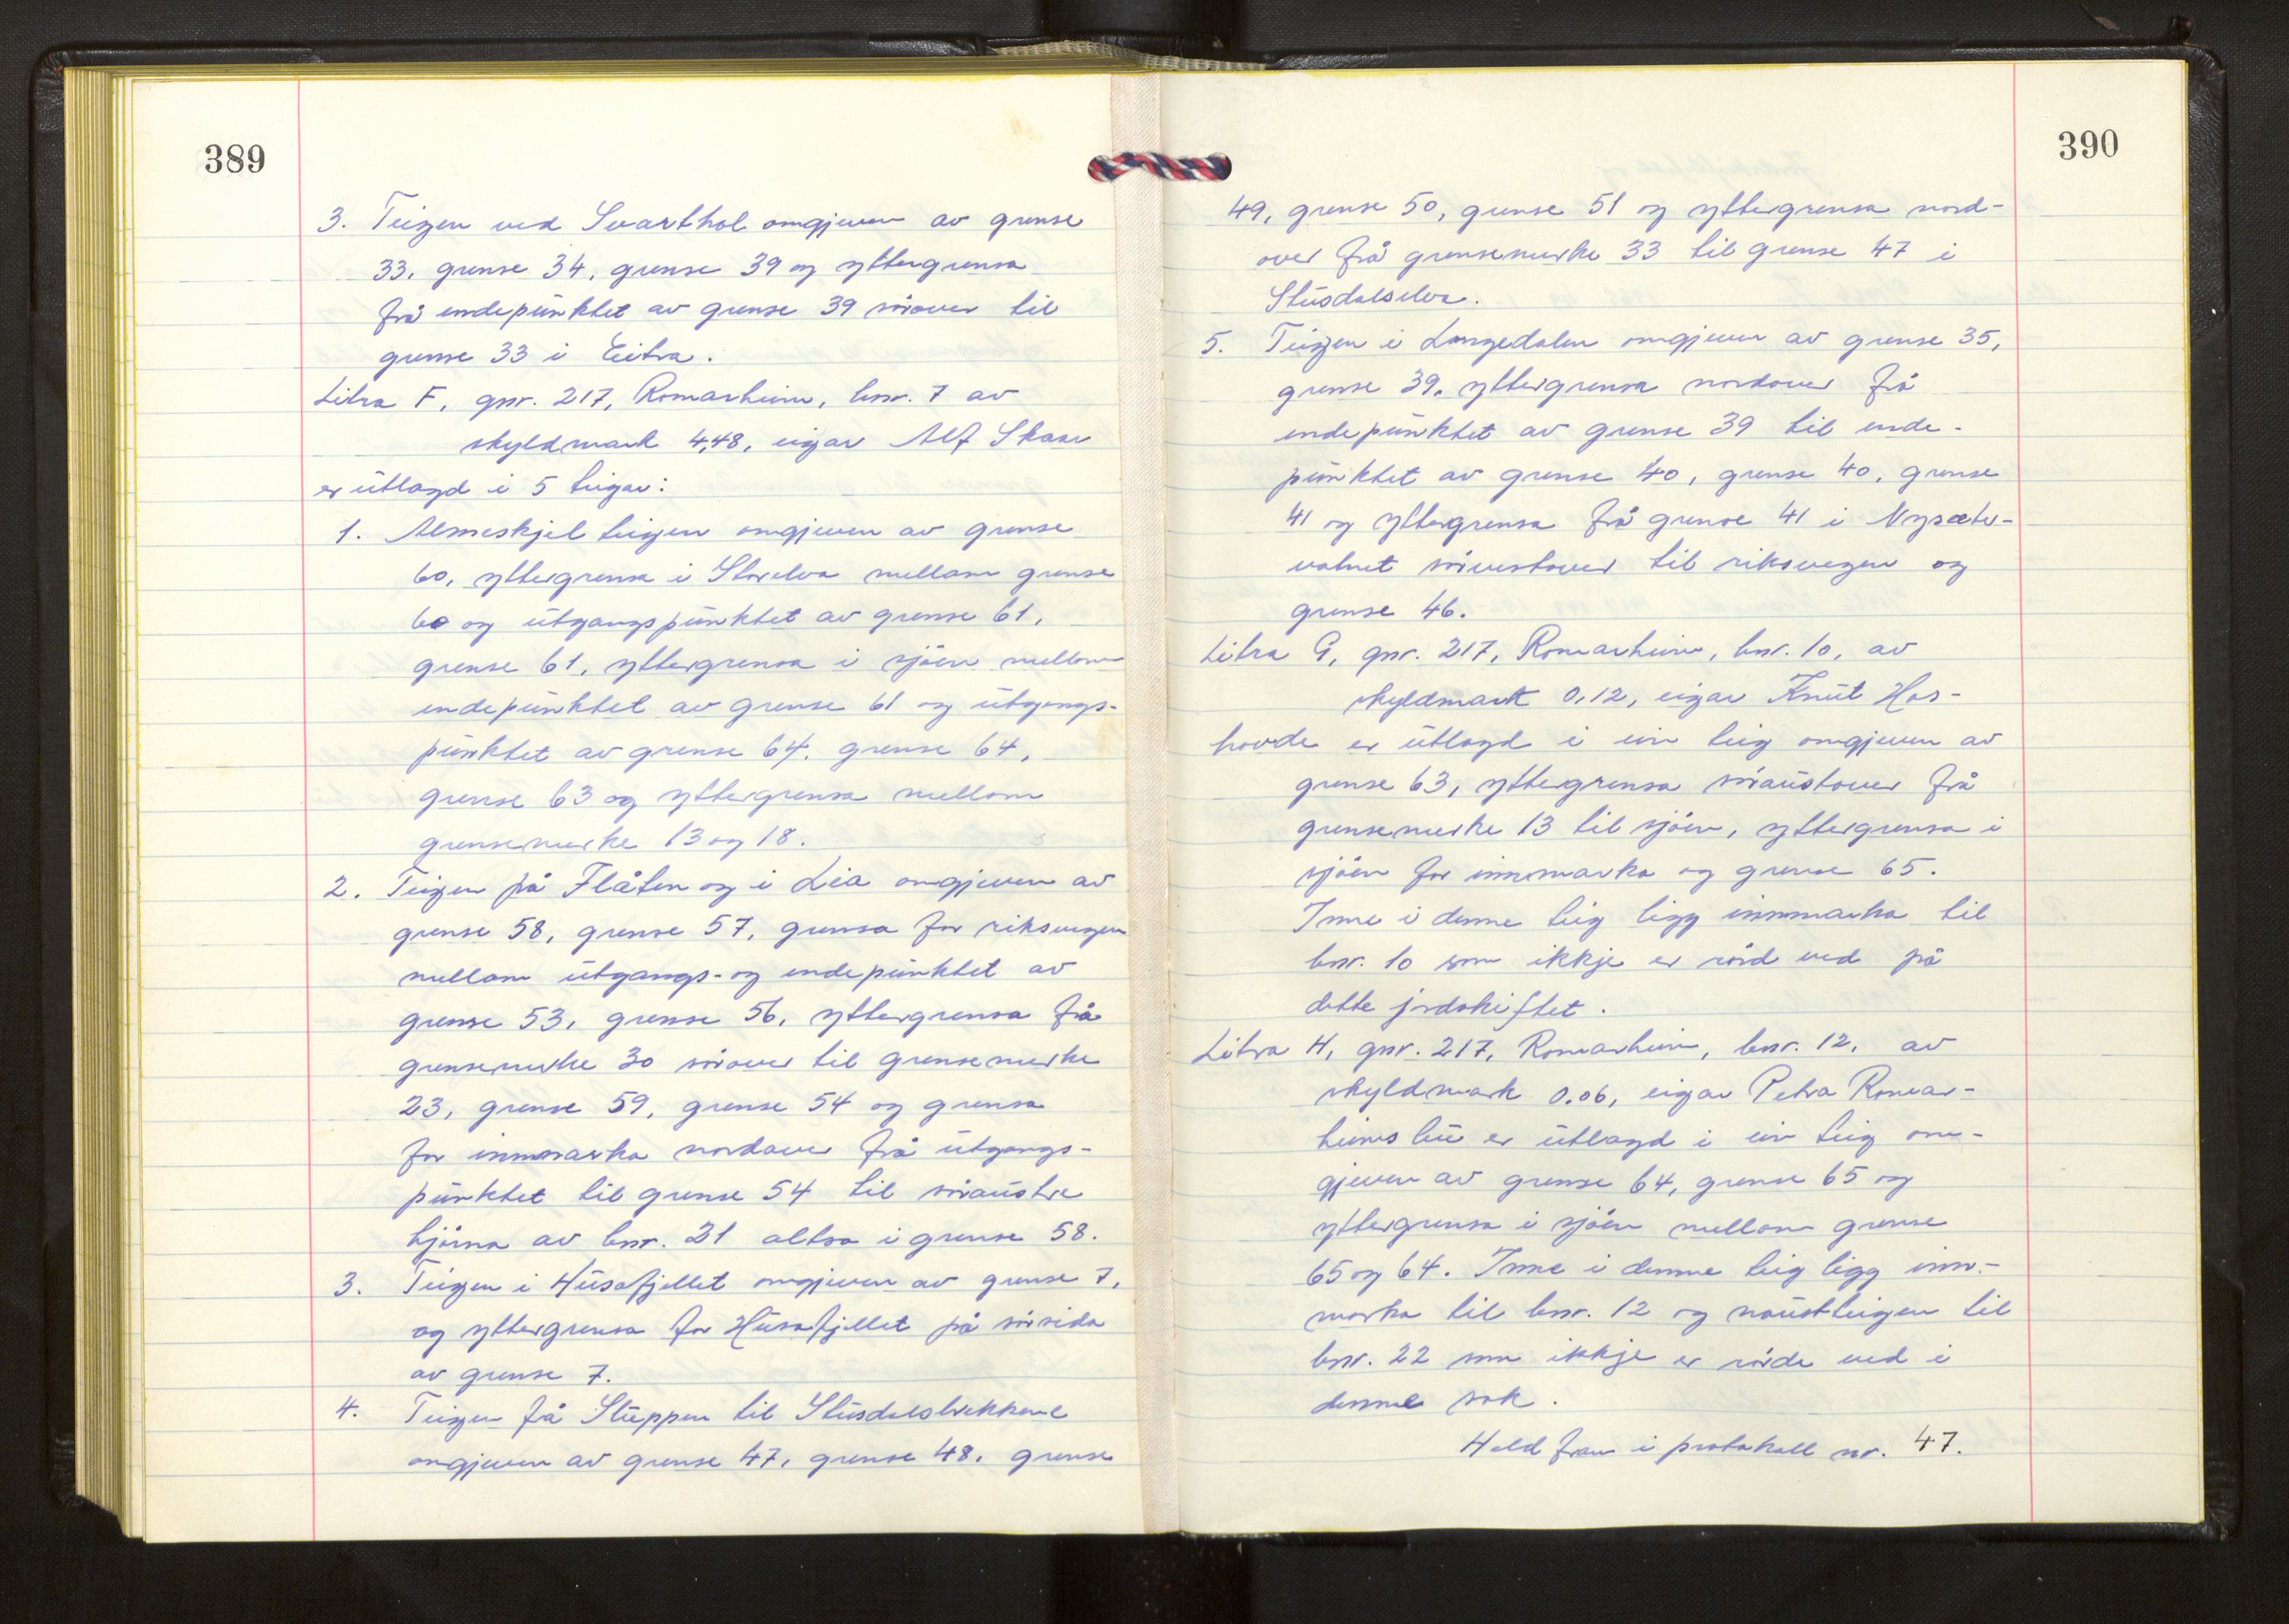 389
3. Teigen ved Svarthol omgjeven av grense
33, grense 34, grense 39 og yttergrensa
frå endepunktet av grense 39 sörover til
grense 33 i Eitra.
Litra F, gnr. 217, Romarheim, bnr. 7 av
skyldmark 4,48, eigar Alf Skaar
er utlagd i 5 teigar:
1. Almeskjel teigen omgjeven av grense
60, yttergrensa i Storelva mellom grense
60 og utgangspunktet av grense 61,
grense 61, yttergrensa i sjöen mellom
endepunktet av grense 61 og utgangs-
punktet av grense 64, grense 64,
grense 63 og yttergrensa mellom
grensemerke 13 og 18.
2. Teigen på Flåten og i Lia omgjeven av
grense 58, grense 57, grensa for riksvegen
mellom utgangs- og endepunktet av
grense 53, grense 56, yttergrensa frå
grensemerke 30 sörover til grensemerke
23, grense 59, grense 54 og grensa
for innmarka nordover frå utgangs-
punktet til grense 54 til söraustre
hjörna av bnr. 21 altso i grense 58.
3. Teigen i Husafjellet omgjeven av grense 7,
og yttergrensa for Husafjellet på sörsida
av grense 7.
4. Teigen frå Stuppen til Stusdalsbrekkene
omgjeven av grense 47, grense 48, grense
390
49, grense 50, grense 51 og yttergrensa nord-
over frå grensemerke 33 til grense 47 i
Stusdalselva.
5. Teigen i Langedalen omgjeven av grense 35,
grense 39, yttergrensa nordover frå
endepunktet av grense 39 til ende-
punktet av grense 40, grense 40, grense
41 og yttergrensa frå grense 41 i Nysæter-
vatnet sörvestover til riksvegen og
grense 46.
Litra G, gnr. 217, Romarheim, bnr. 10, av
skyldmark 0,12, eigar Knut Has-
hovde er utlagd i ein teig omgjeven av
grense 63, yttergrensa söraustover frå
grensemerke 13 til sjöen, yttergrensa i
sjöen for innmarka og grense 65.
Inne i denne teig ligg innmarka til
bnr. 10 som ikkje er rörd ved på
dette jordskiftet.
Litra H, gnr. 217, Romarheim, bnr. 12, av
skyldmark 0.06, eigar Petra Romar-
heimsli er utlagd i ein teig om-
gjeven av grense 64, grense 65 og
yttergrensa i sjöen mellom grense
65 og 64. Inne i denne teig ligg inn-
marka til bnr. 12 og naustteigen til
bnr. 22 som ikkje er rörde ved i
denne sak.
Held fram i protokoll nr. 47.